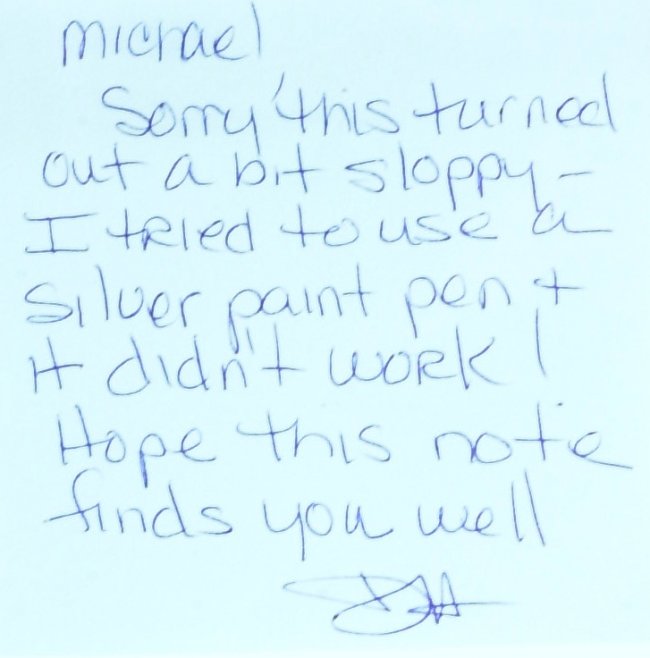 Michael
Sorry this turned
out a bit sloppy -
I tried to use a
silver paint pen +
it didn't work!
Hope this note
finds you well